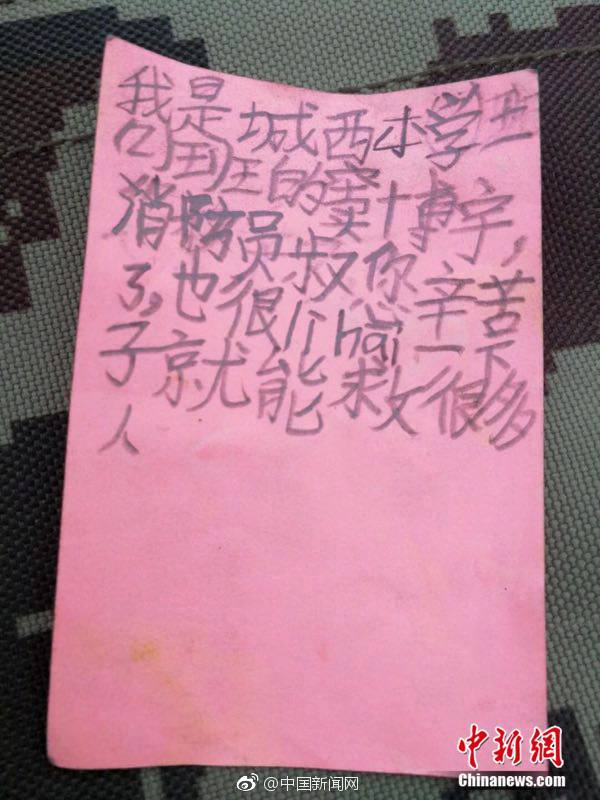 我是城西小学二
班的窦博宇,
消防员叔你辛苦
了,也很li hai 一下
子就能救很多
人
@中国新闻网
中新網
Chinanews.com